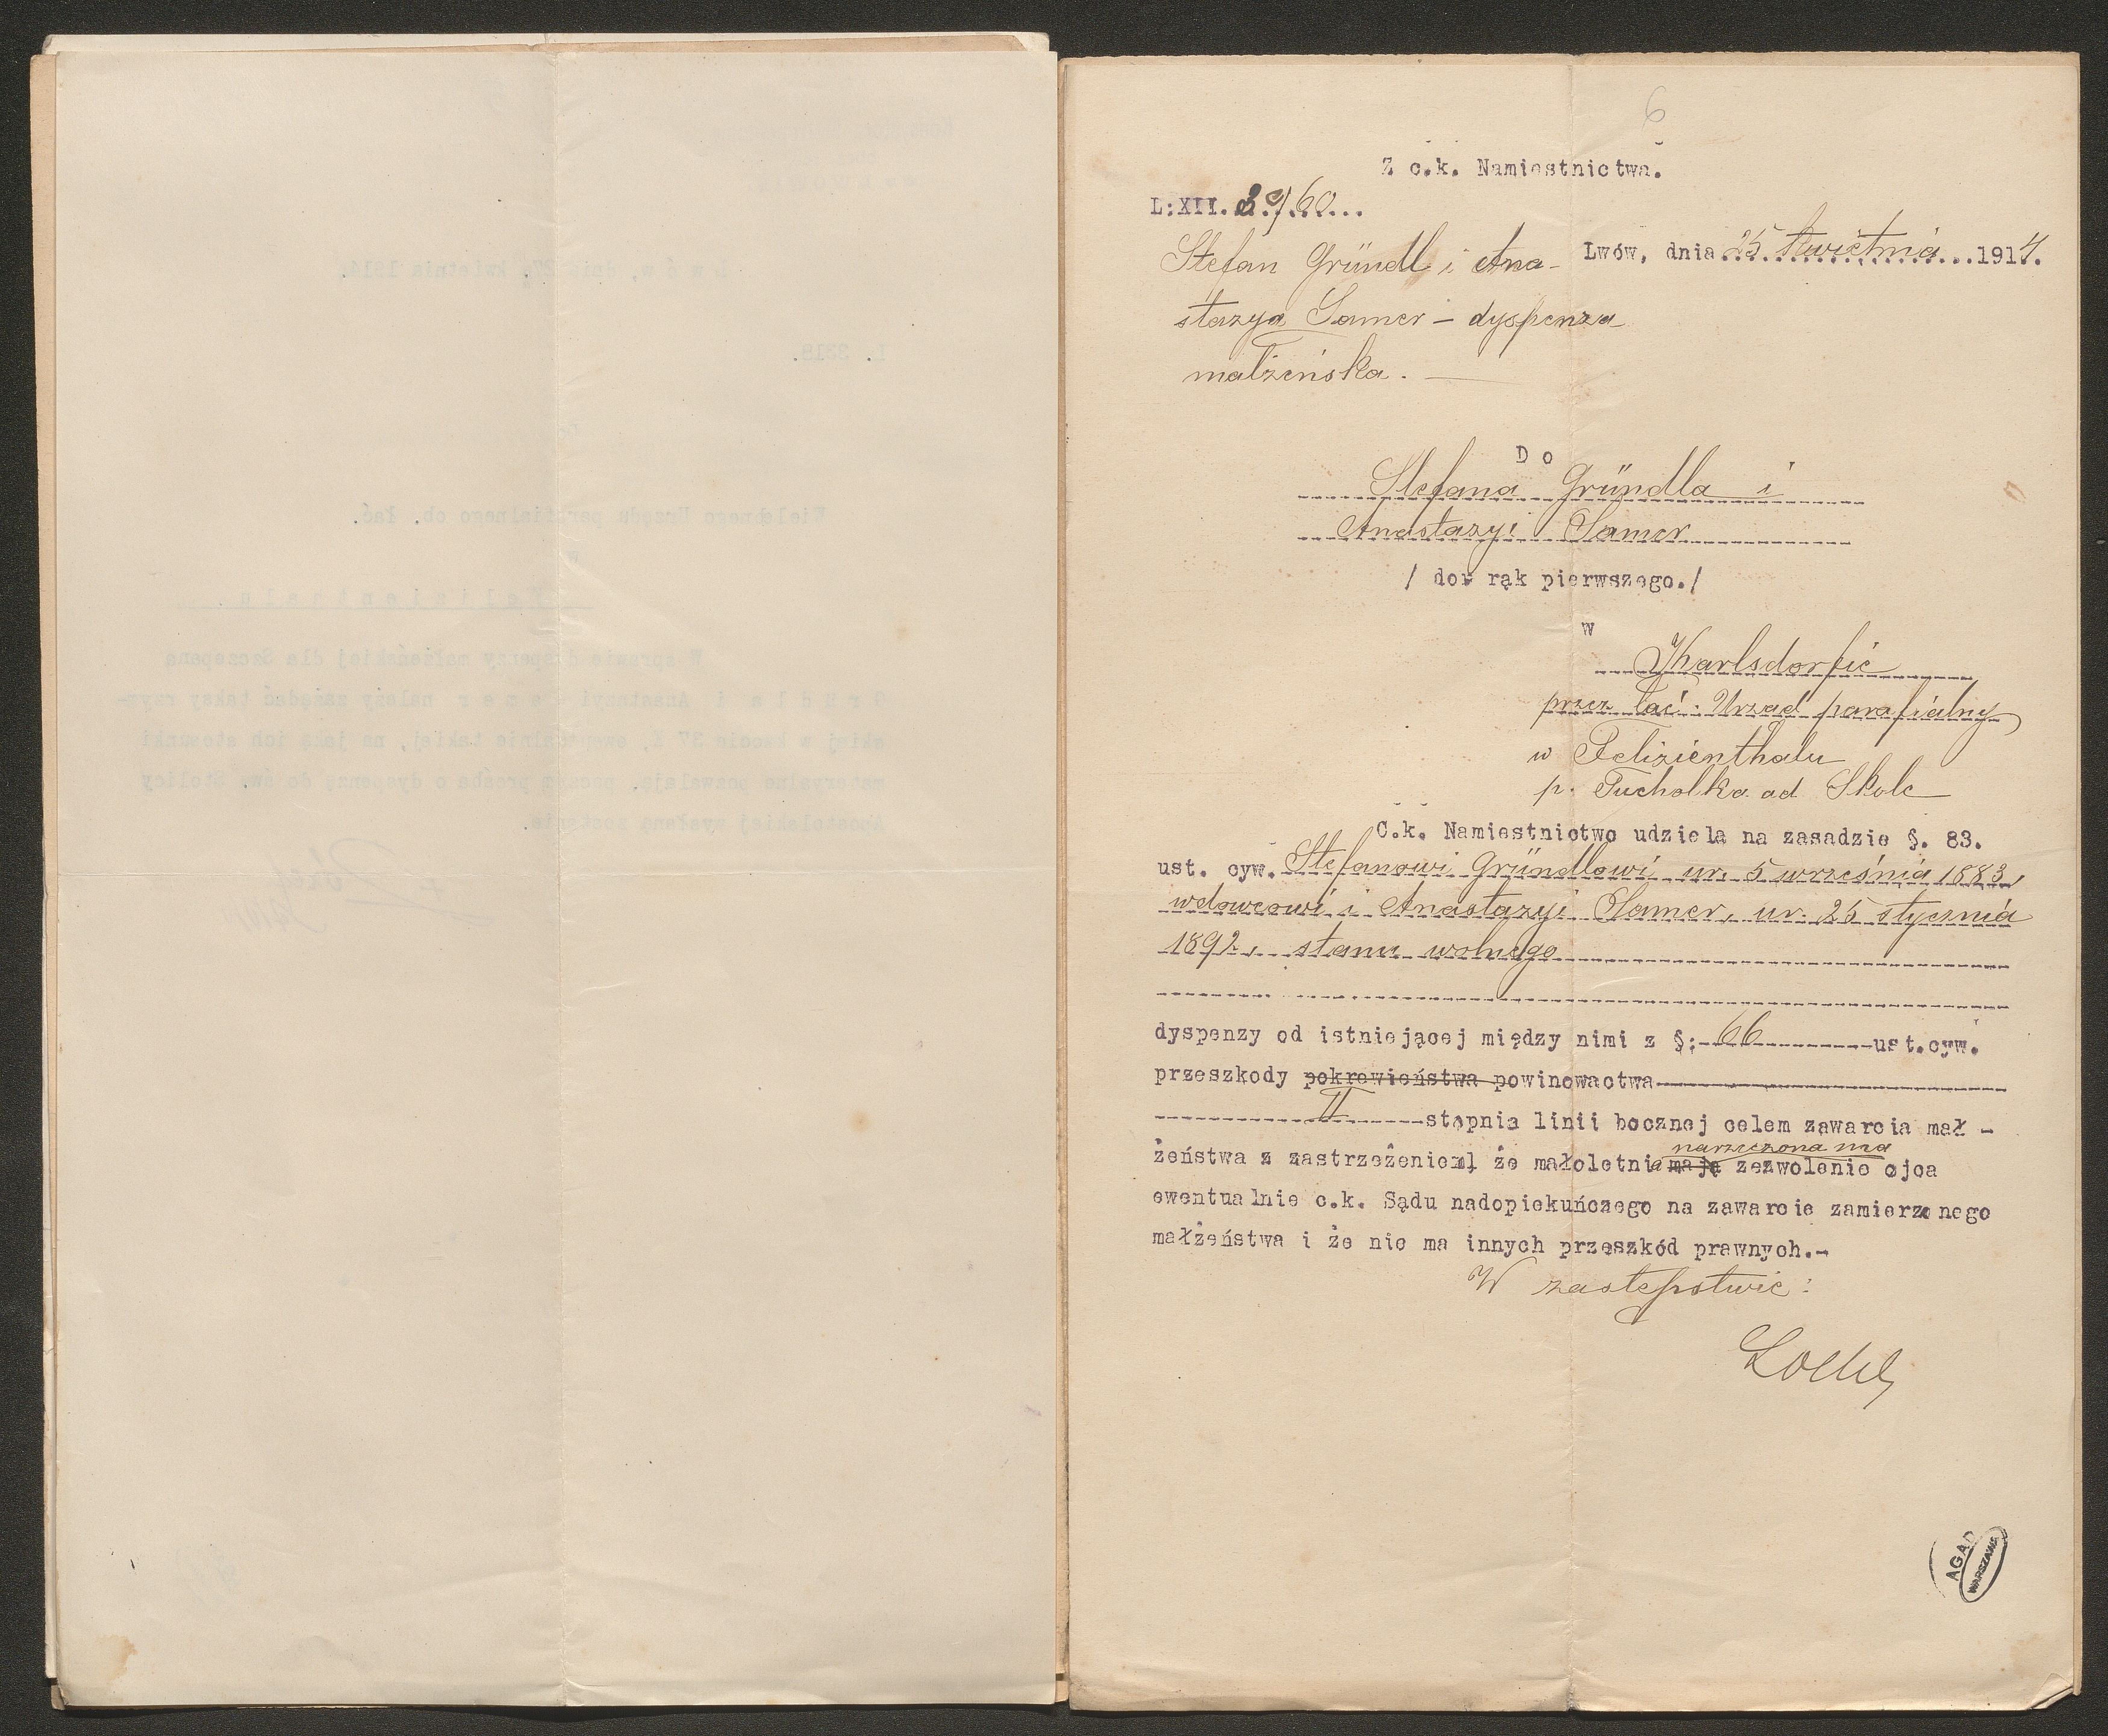 6
Z c.k. Namiestnictwa.
L:XII.
Stefan Gründl i Ana-
Lwów, dnia 25 kwietnia 1914.
stazya Samer – dyspenza
małżeńska. —
Do
Stefana Gründla i
Anastazyi Samer
/ do rąk pierwszego./
w
Karlsdorfie
przez łać. Urząd parafialny
w Felizienthalu
p. Tucholka ad Skole
C.k. Namiestnictwo udziela na zasadzie §. 83.
ust. cyw. Stefanowi Gründlowi, ur. 5 września 1883,
wdowcowi i Anastazyi Samer, ur. 25 stycznia
1892, stanu wolnego
dyspenzy od istniejącej między nimi z §: 66 ust.cyw.
przeszkody pokrewieństwa powinowactwa
II stopnia linii bocznej celem zawarcia mał -
narzeczona ma
żeństwa z zastrzeżeniem że małoletnia mają zezwolenie ojca
ewentualnie c.k. Sądu nadopiekuńczego na zawarcie zamierzonego
małżeństwa i że nie ma innych przeszkód prawnych.-
W zastępstwie:
AGAD
WARSZAWA
L. 3318.
Lwów, dnia 27. kwietnia 1914.
Wielebnego Urzędu parafialnego ob. łać.
w
Felizienthalu
W sprawie dyspenzy małżeńskiej dla Szczepana
Gründla i Anastazyi Samer należy zażądać taksy rzym-
skiej w kwocie 37 K, ewentualnie takiej, na jaką ich stosunki
materyalne pozwalają, poczem prośba o dyspenzę do św. Stolicy
Apostolskiej wysłaną zostanie.